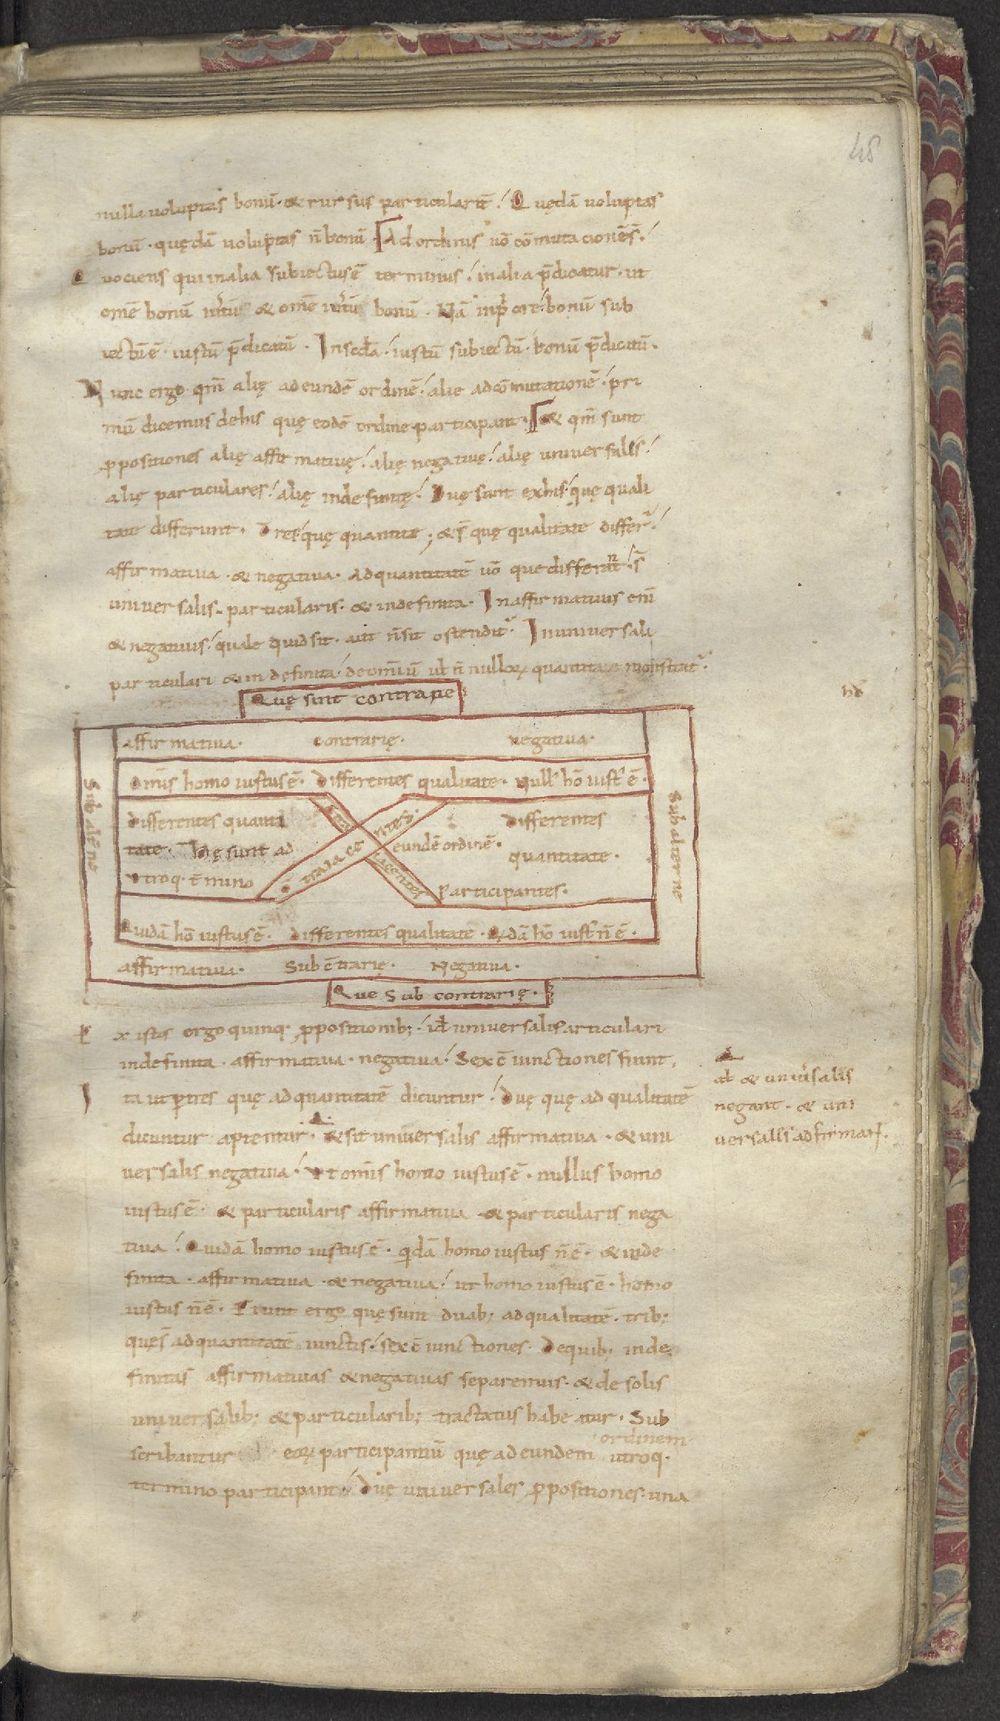 48
nulla voluptas bonū · & rursus particularit̄ · Quędā voluptas
bonū · quędā voluptas n̄ bonū · Ad ordinis uō cōmutacionēs ·
uociens qui in alia subiectus ē terminus · in alia p̄dicatur · ut
omē bonū iustū & omē iustū bonū · Nā in priore bonū sub
iectū ē · iustū p̄dicatū · In sc̄da · iustū subiectū · bonū p̄dicatū ·
Nunc ergo qm̄ alię ad eundē ordinē · alie ad cōmutationē · pri
mū dicemus de his quę eodē ordine participant · & qm̄ sunt
ꝓpositiones alię affirmativę · alię negativę · alię universales ·
alię particulares · alię indefinitę · Duę sunt ex his quę quali
tate differunt · Tres quę quantitate ; & s̄ quę qualitate differ̄ ·
affirmativa · & negativa · Ad quantitatē uō que differunt · s̄
universalis · particularis · & indefinita · In affirmativis eni̅
& negativis · quale quid sit · aut n̄ sit ostendit̄ · In universali
particulari & indefinita · de omīū ul n̄ nulloꝝ quantitate monstrat̄ ·
Quę sint contrarie
no
affirmativa · contrarię · negativa ·
Omīs homo iustus ē · Differentes qualitate · Null' hō iust' ē ·
Sub alt̄ne
Sub alterne
Differentes quanti
tate · Hę sunt ad
utroq · t̄mino
eundē ordinē ·
Differentes
quantitate ·
Participantes ·
Quidā hō iustus ē · Differentes qualitate · Q̇dā hō iust' n̄ ē ·
affirmativa · Sub c̄trarię · Negativa ·
Que sub contrarię ·
Ex istis ergo quinq · ꝓpositionib; · id ē universali particulari
indefinita · affirmativa · negativa · Sex c̄iunctiones fiunt ·
Ita ut p̄tres quę ad quantitatē dicuntur · Duę quę ad qualitatē
dicuntur aptentur · & sit universalis affirmativa · & uni
versalis negativa · Ut omīs homo iustus ē · nullus homo
iustus ē · & particularis affirmativa & particularis nega
tiva · Quidā homo iustus ē · q̇dā homo iustus n̄ ē · & inde
finita · affirmativa · & negativa · ut homo iustus ē · homo
iustus n̄ ē · Fiunt ergo quę sunt duab; ad qualitatē · trib;
quę s̄ ad quantitatē iunctis · sex c̄iunctiones · De quib; inde
finitas affirmativas & negativas separemus · & de solis
universalib; & particularib; tractatus habeatur · Sub
scribantur eoꝝ participantiū quę ad eundem ordinem utroq ·
termino participant · Duę universales ꝓpositiones · una
& univ̄salis
negant · & uni
versalis adfirmat ·